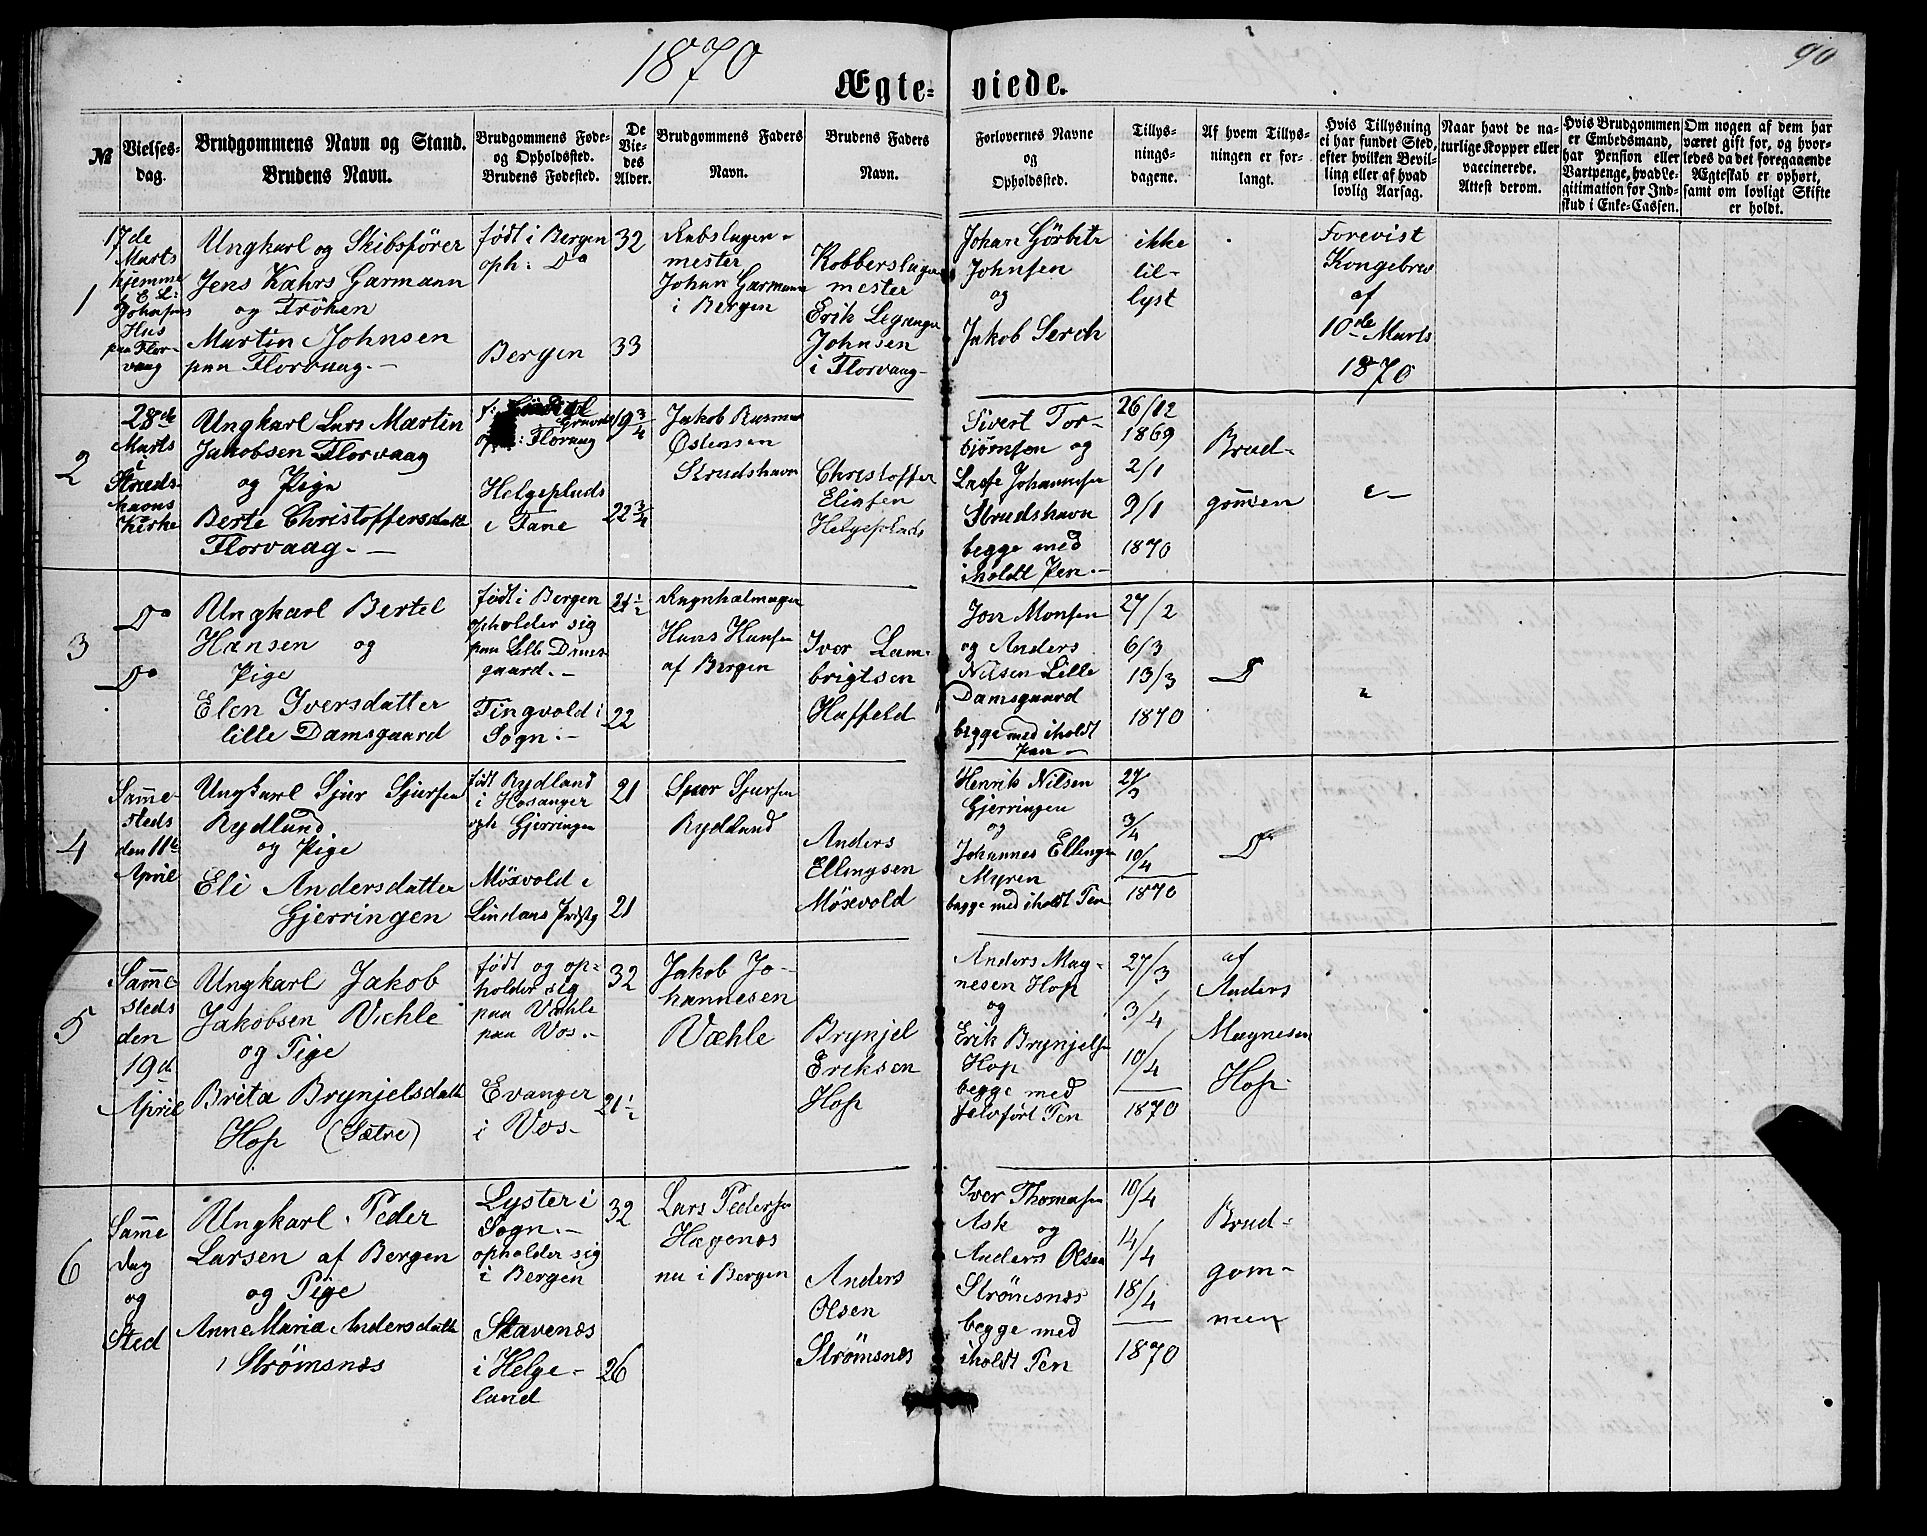 1870
90
Ægte-
viede.
№
Vielses-
dag.
Brudgommens Navn og Stand.
Brudens Navn.
Brudgommens Føde-
og Opholdssted.
Brudens Fødested.
De
Vie-
des
Alder.
Brudgommens Faders
Navn.
Brudens Faders
Navn.
Forlovernes Navne
og
Opholdssted.
Tillys-
nings-
dagene.
Af hvem Tillys-
ningen er for-
langt.
Hvis Tillysning
ei har fundet Sted,
efter hvilken Bevil-
ling eller af hvad
lovlig Aarsag.
Naar havt de na-
turlige Kopper eller
vaccinerede.
Attest derom.
Hvis Brudgommen
er Embedsmand,
har Pension eller
Vartpenge, hvad Le-
gitimation for Ind-
skud i Enke-Cassen.
Om nogen af dem har
været gift før, og hvor-
ledes da det foregaaende
Ægteskab er ophørt,
samt om lovligt Skifte
er holdt.
1
17de
Marts
hjemme
i E L:
Johnsens
Hus
paa Flor-
vaag
Ungkarl og Skibsfører
Jens Kahrs Garmann
og Frøken
Martin Johnsen
paa Florvaag.-
født i Bergen
oph: Do
Bergen
32
33
Rebslager-
mester
Johan Garmann
i Bergen
Kobberslager
mester
Erik Leganger
Johnsen
i Florvaag-
Johan Görbitz
Johnsen
og
Jakob Lerch
ikke
til-
lyst
Forevist
Kongebrev
af
10de Marts
1870
2
28de
Marts
i
Struds-
havns
Kirke
Ungkarl Lars Martin
Jakobsen Florvaag
og Pige
Berte Christoffersdatt
Florvaag.-
f:
Florvaag
Helgeplads
i Fane
19 3/4
22 3/4
Jakob Rasmus
Østensen
Strudshavn
Christoffer
Eliasen
Helgeplads
Sivert Tor-
bjørnsen og
Lasse Johannesen
Strudshavn
begge med
iholdt Pen.-
26/12
1869
2/1
9/1
1870
Brud-
gommen
3
Do
Do
Ungkarl Bertel
Hansen og
Pige
Elen Iversdatter
lille Damsgaard
født i Bergen
opholder sig
paa Lille Dams
gaard.-
Tingvold i
Sogn.-
21 1/2
22
Hans Hansen
af Bergen
Iver Lam-
brigtsen
Haffeld
Jon Monsen
og Anders
Nilsen Lille
Damsgaard
begge med iholdt
Pen-
27/2
6/3
13/3
1870
D
4
Samme-
steds
den 11te
April
Ungkarl Sjur Sjursen
Rydland
og Pige
Eli Andersdatter
Gjerringen
født Rydland
i Hosanger
oph Gjerringen
Møxvold i
Lindaas Prstg
21
21
Sjur Sjursen
Rydland
Anders
Ellingsen
Møxvold
Henrik Nilsen
Gjerringen
og
Johannes Ellingsen
Myren
begge med iholdt Pen
27/3
3/4
10/4
1870
Do
5
Samme-
steds
den
19de
April
Ungkarl Jakob
Jakobsen Væhle
og Pige
Brita Brynjelsdatt
Hop (Sætre)
født og op-
holder sig
paa Væhle
paa Vos.-
Evanger
i Vos-
32
21 1/2
Jakob Jo-
hannesen
Væhle
Brynjel
Eriksen
Hop
Anders Mag-
nesen Hop
og
Erik Brynjelsen
Hop
begge med
selvført Pen
27/3
3/4
10/4
1870
af
Anders
Magnesen
Hop
6
Samme
Dag
og
Sted
Ungkarl Peder
Larsen af Bergen
og Pige
Anne Maria Andersdatt
Strømsnæs
Lyster i
Sogn.-
opholder sig
i Bergen
Stavenæs
i Helge-
land
32
26
Lars Pedersen
Hagenæs
nu i Bergen
Anders
Olsen
Strømsnæs
Iver Thomasen
Ask og
Anders Olsen
Strømsnæs
begge med
iholdt Pen
10/4
14/4
18/4
1870
Brud-
gom-
men